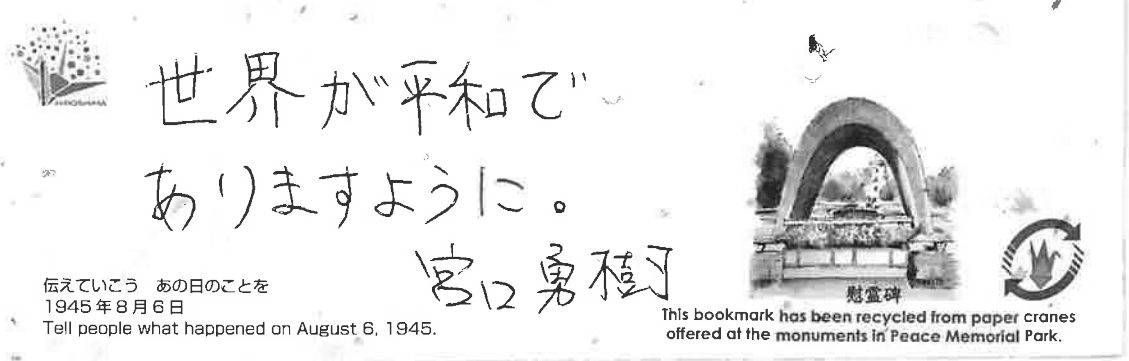 HIROSHIMA
世界が平和で
ありますように。
宮口勇樹
伝えていこう　あの日のことを
1945年8月6日
Tell people what happened on August 6, 1945.
慰霊碑
This bookmark has been recycled from paper cranes
offered at the monuments in Peace Memorial Park.